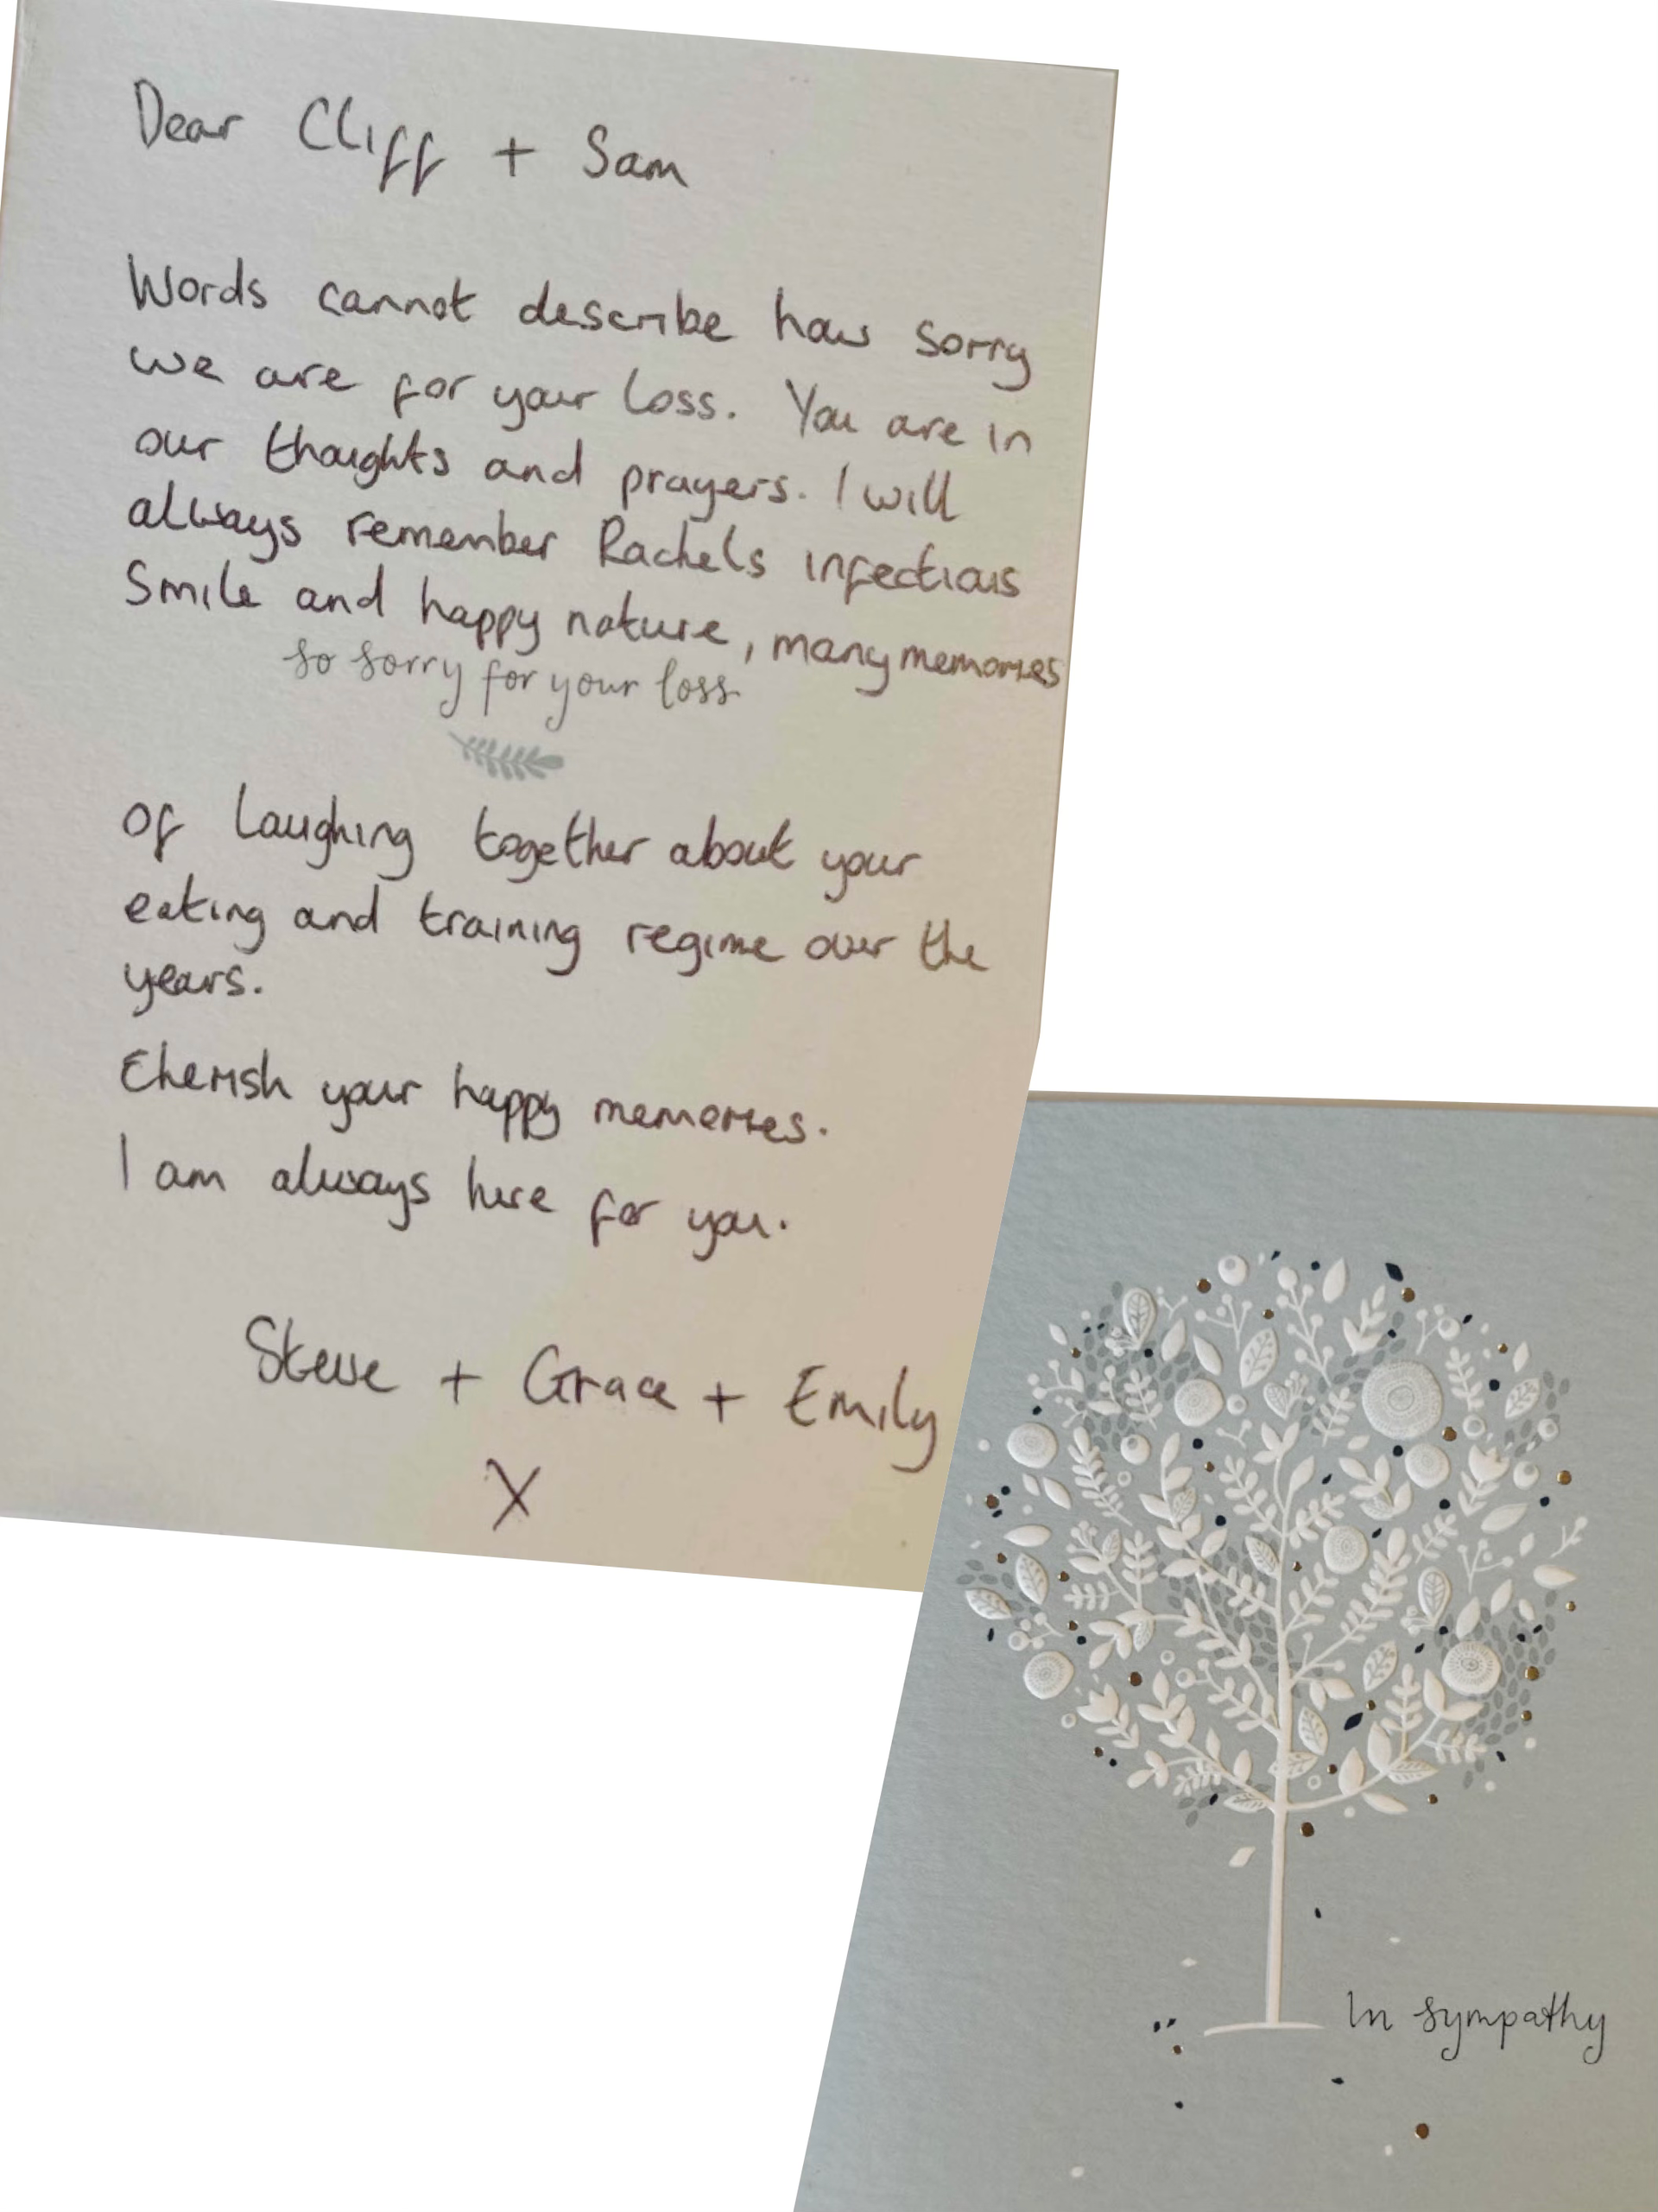 Dear Cliff + Sam
Words cannot describe how sorry
we are for your loss. You are in
our thoughts and prayers. I will
always remember Rachels infectious
Smile and happy nature, many memories
so sorry for your loss
of laughing together about your
eating and training regime over the
years.
Cherish your happy memories.
I am always here for you.
Steve + Grace + Emily
X
In sympathy